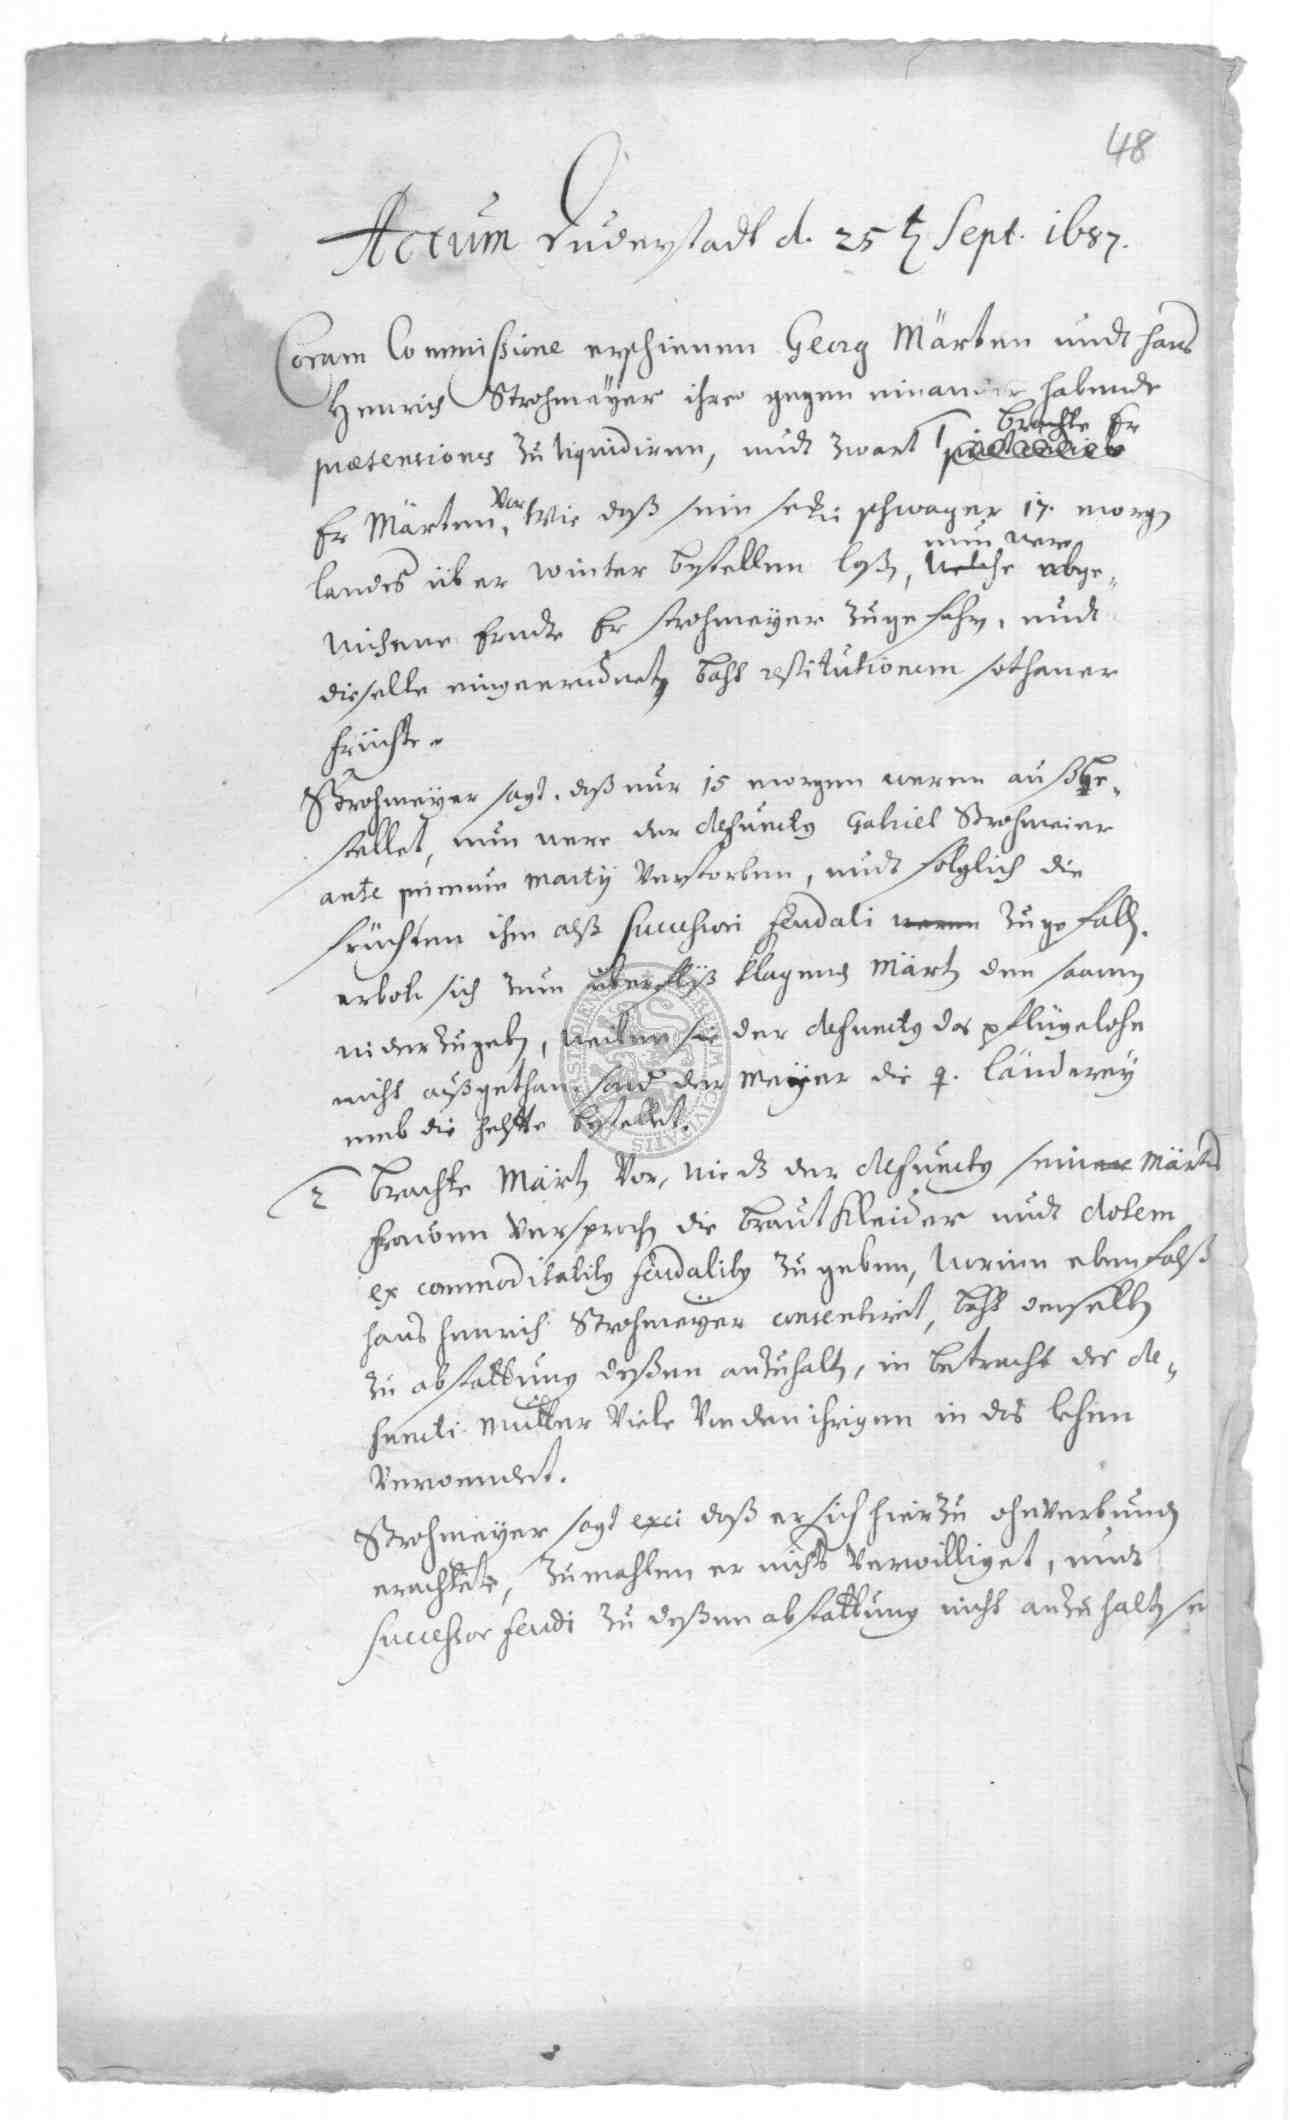 48
Actum Duderstadt d. 25t Sept. 1687.
Coram Commissione erschienen Georg Märten undt Hans
Henrich Strohmeÿer ihre gegen einander habende
prætensiones zu liquidiren, undt zwart brachte Er
Er Märten vor, Wie daß sein schwager 17. morg
landes über winter bestellen laß, nun were welche abge-
wichene Erndte Er strohmeÿer zugefahr, undt
dieselbe eingeerndnet, baht restitutionem sothaner
früchte.
Strohmeÿer sagt, daß nur 15 morgen weren außbe-
stellet, nun were der defunctus Gabriel Strohmeier
ante primum martij verstorben, undt folglich die
früchten ihm alß successori feudali weren zugefall.
erboht sich zum überfluß klagend Märt den saam
wider zugeb, weilen sie der defunctus das pflügelohn
nicht außgethan, sond der Meÿer die q. länderey
umb die helffte bestellet.
2 brachte Märt vor, wie dz der defunctus seiner Märt
frawen versproch die brautkleider undt dotem
ex commoditatibus feudalibus zu geben, worinn ebenfalß
Hans Henrich Strohmeÿer consentiret, baht denselb
zu abstattung deßen anzuhalt, in betracht des de-
functi Mutter viele von den ihrigen in das lehen
verwendet.
Strohmeÿer sagt daß er sich hierzu ohnverbund
erachtete, zumahlen er nichts verwilliget, undt
successor feudi zu deßen abstattung nicht anzuhalt se